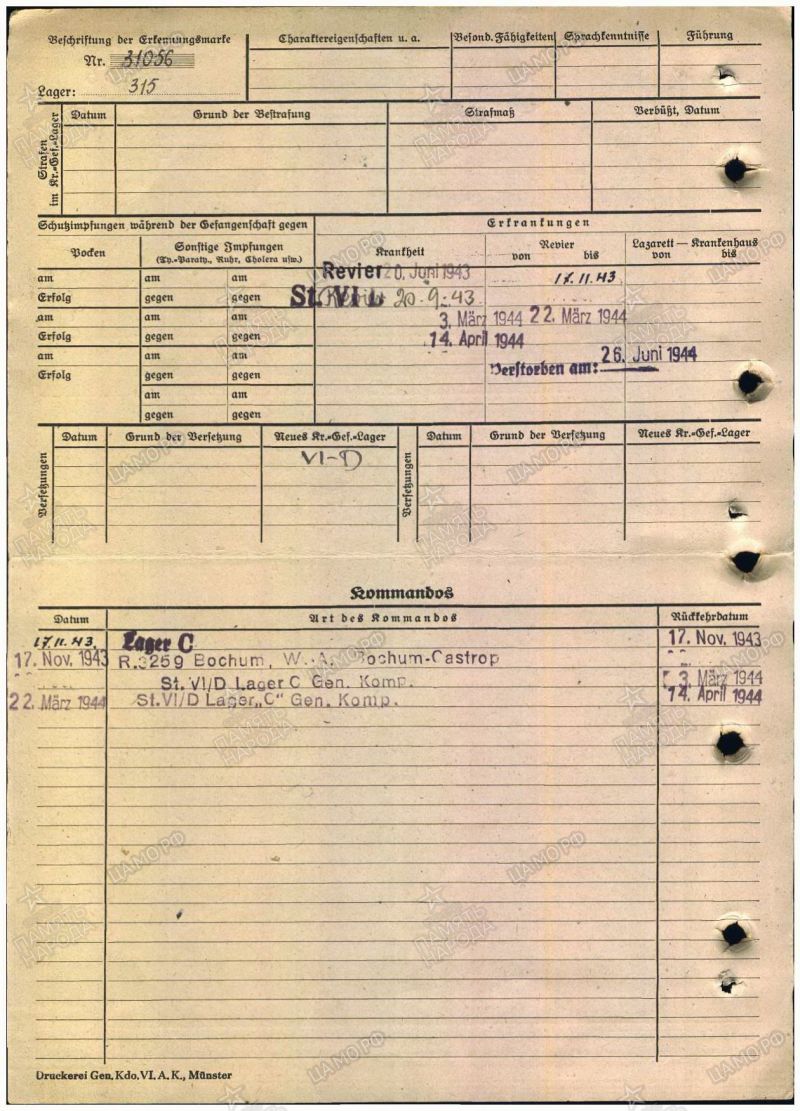 Beschriftung der Erkennungsmarke
Nr. 31056
Lager: 315
Charaktereigenschaften u. a.
Besond. Fähigkeiten
Sprachkenntnisse
Führung
Strafen im Kr.-Gef.-Lager
Datum
Grund der Bestrafung
Strafmaß
Verbüßt, Datum
Schutzimpfungen während der Gefangenschaft gegen
Erkrankungen
Pocken
Sonstige Impfungen
(Ty.-Paraty., Ruhr, Cholera usw.)
Krankheit
Revier
von bis
Lazarett — Krankenhaus
von bis
am am am
Revier 20. Juni 1943
17.11.43
Erfolg gegen gegen
St. VI
Revier 20.9.43
am am am
3. März 1944 22. März 1944
Erfolg gegen gegen
14. April 1944
am am am
26. Juni 1944
Erfolg gegen gegen
Verstorben am:
am am
gegen gegen
Versetzungen
Datum
Grund der Versetzung
Neues Kr.-Gef.-Lager
VI-D
Versetzungen
Datum
Grund der Versetzung
Neues Kr.-Gef.-Lager
Kommandos
Datum
Art des Kommandos
Rückkehrdatum
17.11.43 Lager C 17. Nov. 1943
17. Nov. 1943 R.3259 Bochum, W. A. Bochum-Castrop
St. VI/D Lager C Gen. Komp. 3. März 1944
22. März 1944 St. VI/D Lager „C" Gen. Komp. 14. April 1944
Druckerei Gen. Kdo. VI. A. K., Münster
ПАМЯТЬ НАРОДА
ЦАМО РФ